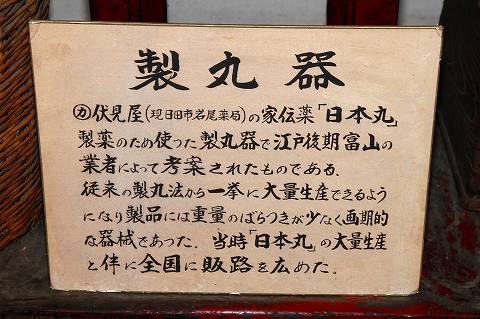 製丸器
㋕伏見屋(現日田市岩尾薬局)の家伝薬「日本丸」
製薬のため使った製丸器で江戸後期富山の
業者によって考案されたものである。
従来の製丸法から一挙に大量生産できるよう
になり製品には重量のばらつきが少なく画期的
な器械であった。当時「日本丸」の大量生産
と伴に全国に販路を広めた。